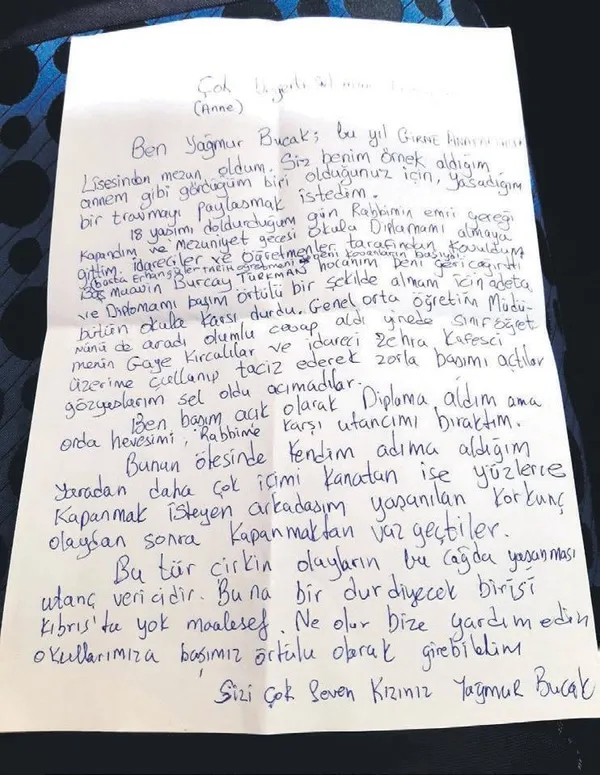 Çok
(Anne)
Ben Yağmur Bucak; bu yıl GİRNE
Lisesinden mezun oldum. Siz benim örnek aldığım
annem gibi gördüğüm biri olduğunuz için, yaşadığım
bir travmayı paylaşmak istedim.
18 yaşımı doldurduğum gün Rabbimin emri gereği
Kapandım ve Mezuniyet gecesi okula Diplomamı almaya
gittim. İdareciler ve öğretmenler tarafından Kovuldum
TARİH öğretmeni beni kovanların başıydı
Baş muavin Burcay TÜRKMAN hocanım beni geri çağırdı
ve Diplomamı başım örtülü bir şekilde almam için adeta
bütün okula karşı durdu. Genel orta öğretim Müdü-
rünü de aradı olumlu cevap aldı yinede sınıf öğret
menin Gaye Kırcalılar ve idareci Zehra Kafesci
üzerime çullanıp taciz ederek zorla başımı açtılar
gözyaşlarım sel oldu acımadılar.
Ben başım açık olarak Diploma aldım ama
orda hevesimi, Rabbime karşı utancımı bıraktım.
Bunun ötesinde kendim adıma aldığım
yaradan daha çok içimi kanatan ise yüzlerce
Kapanmak isteyen arkadaşım yaşanılan korkunç
olaydan sonra kapanmaktan vaz geçtiler.
Bu tür çirkin olayların bu çağda yaşanması
utanç vericidir. Buna bir dur diyecek birisi
Kıbrıs'ta yok maalesef. Ne olur bize yardım edin
okullarımıza başımız örtülü olarak girebilelim
Sizi Çok Seven Kızınız Yağmur Bucak